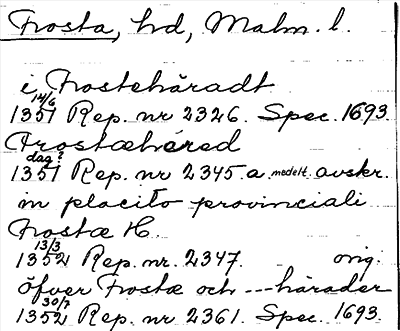 Frosta, hd, Malm. l.
i Frostehäradt
1351 14/6 Rep. nr 2326. Spec. 1693
Frostæhéred
1351 dag? Rep. nr 2345.a. medelt. avskr.
in placito provinciali
Frostæ H.
1352 13/3 Rep. nr. 2347. orig.
öfver Frostæ och --- härader
1352 30/7 Rep. nr 2361. Spec. 1693.